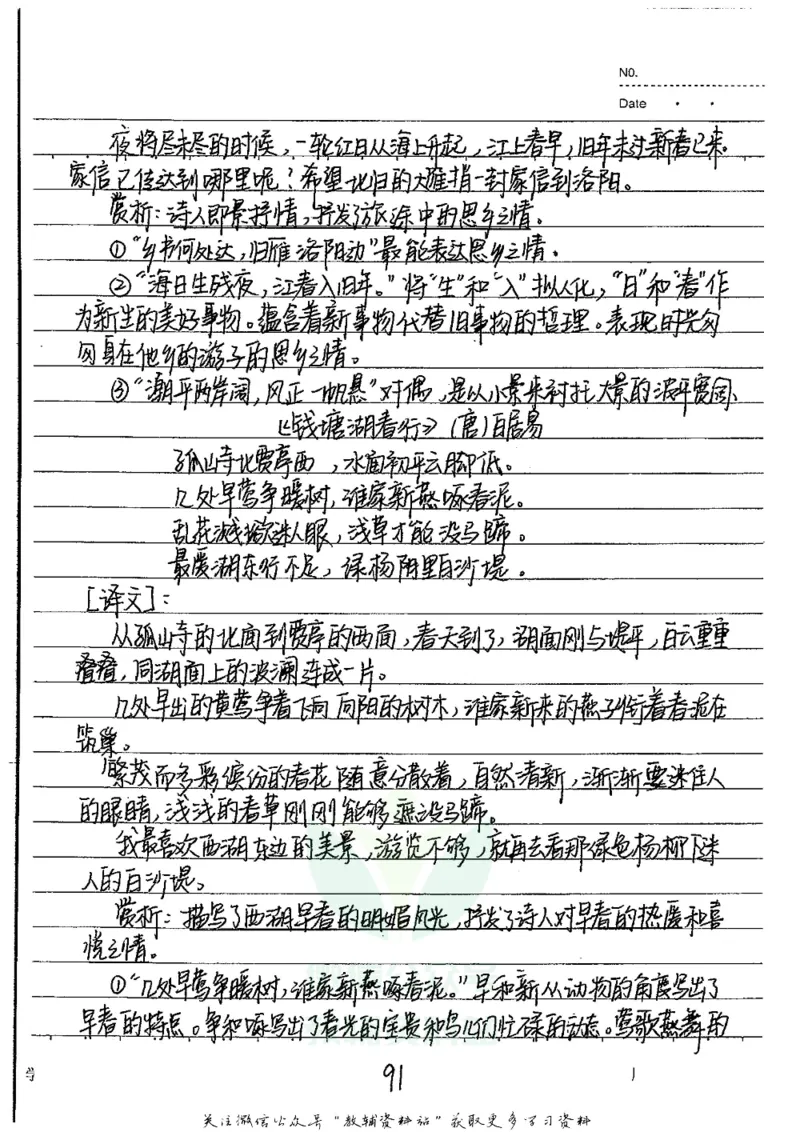 NO.
Date
夜将尽未尽的时候，一轮红日从海上升起，江上春早，旧年未过新春已来。
家信已传达到哪里呢？希望北归的大雁捎一封家信到洛阳。
赏析：诗人即景抒情，抒发了旅途中的思乡之情。
①“乡书何处达，归雁洛阳动”最能表达思乡之情。
②“海日生残夜，江春入旧年。”将“生”和“入”拟人化，“日”和“春”作
为新生的美好事物。蕴含着新事物代替旧事物的哲理。表现时光匆
匆身在他乡的游子的思乡之情。
③“潮平两岸阔，风正一帆悬”对偶，是以小景来衬托大景的波平宽阔、
《钱塘湖春行》（唐）白居易
孤山寺北贾亭西，水面初平云脚低。
几处早莺争暖树，谁家新燕啄春泥。
乱花渐欲迷人眼，浅草才能没马蹄。
最爱湖东行不足，绿杨阴里白沙堤。
[译文]：
从孤山寺的北面到贾亭的西面，春天到了，湖面刚与堤平，白云重重
叠叠，同湖面上的波澜连成一片。
几处早出的黄莺争着飞向向阳的树木，谁家新来的燕子衔着春泥在
筑巢。
繁茂而多彩缤纷的春花随意分散着，自然清新，渐渐要迷住人
的眼睛，浅浅的春草刚刚能够遮没马蹄。
我最喜欢西湖东边的美景，游览不够，就再去看那绿色杨柳下迷
人的白沙堤。
赏析：描写了西湖早春的明媚风光，抒发了诗人对早春的热爱和喜
悦之情。
①“几处早莺争暖树，谁家新燕啄春泥。”早和新从动物的角度写出了
早春的特点。争和啄写出了春光的宝贵和鸟儿们忙碌的动态。莺歌燕舞的
91
关注微信公众号“教辅资料站”获取更多学习资料